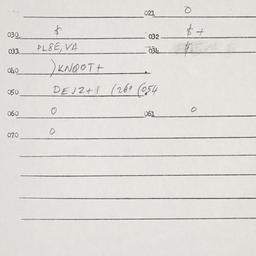 021 0
030 $ 032 $ +
033 PL8E,VA 034 $
040 )KNQOT+
050 DEJ2+1 (269 (054
060 0 061 0
070 0